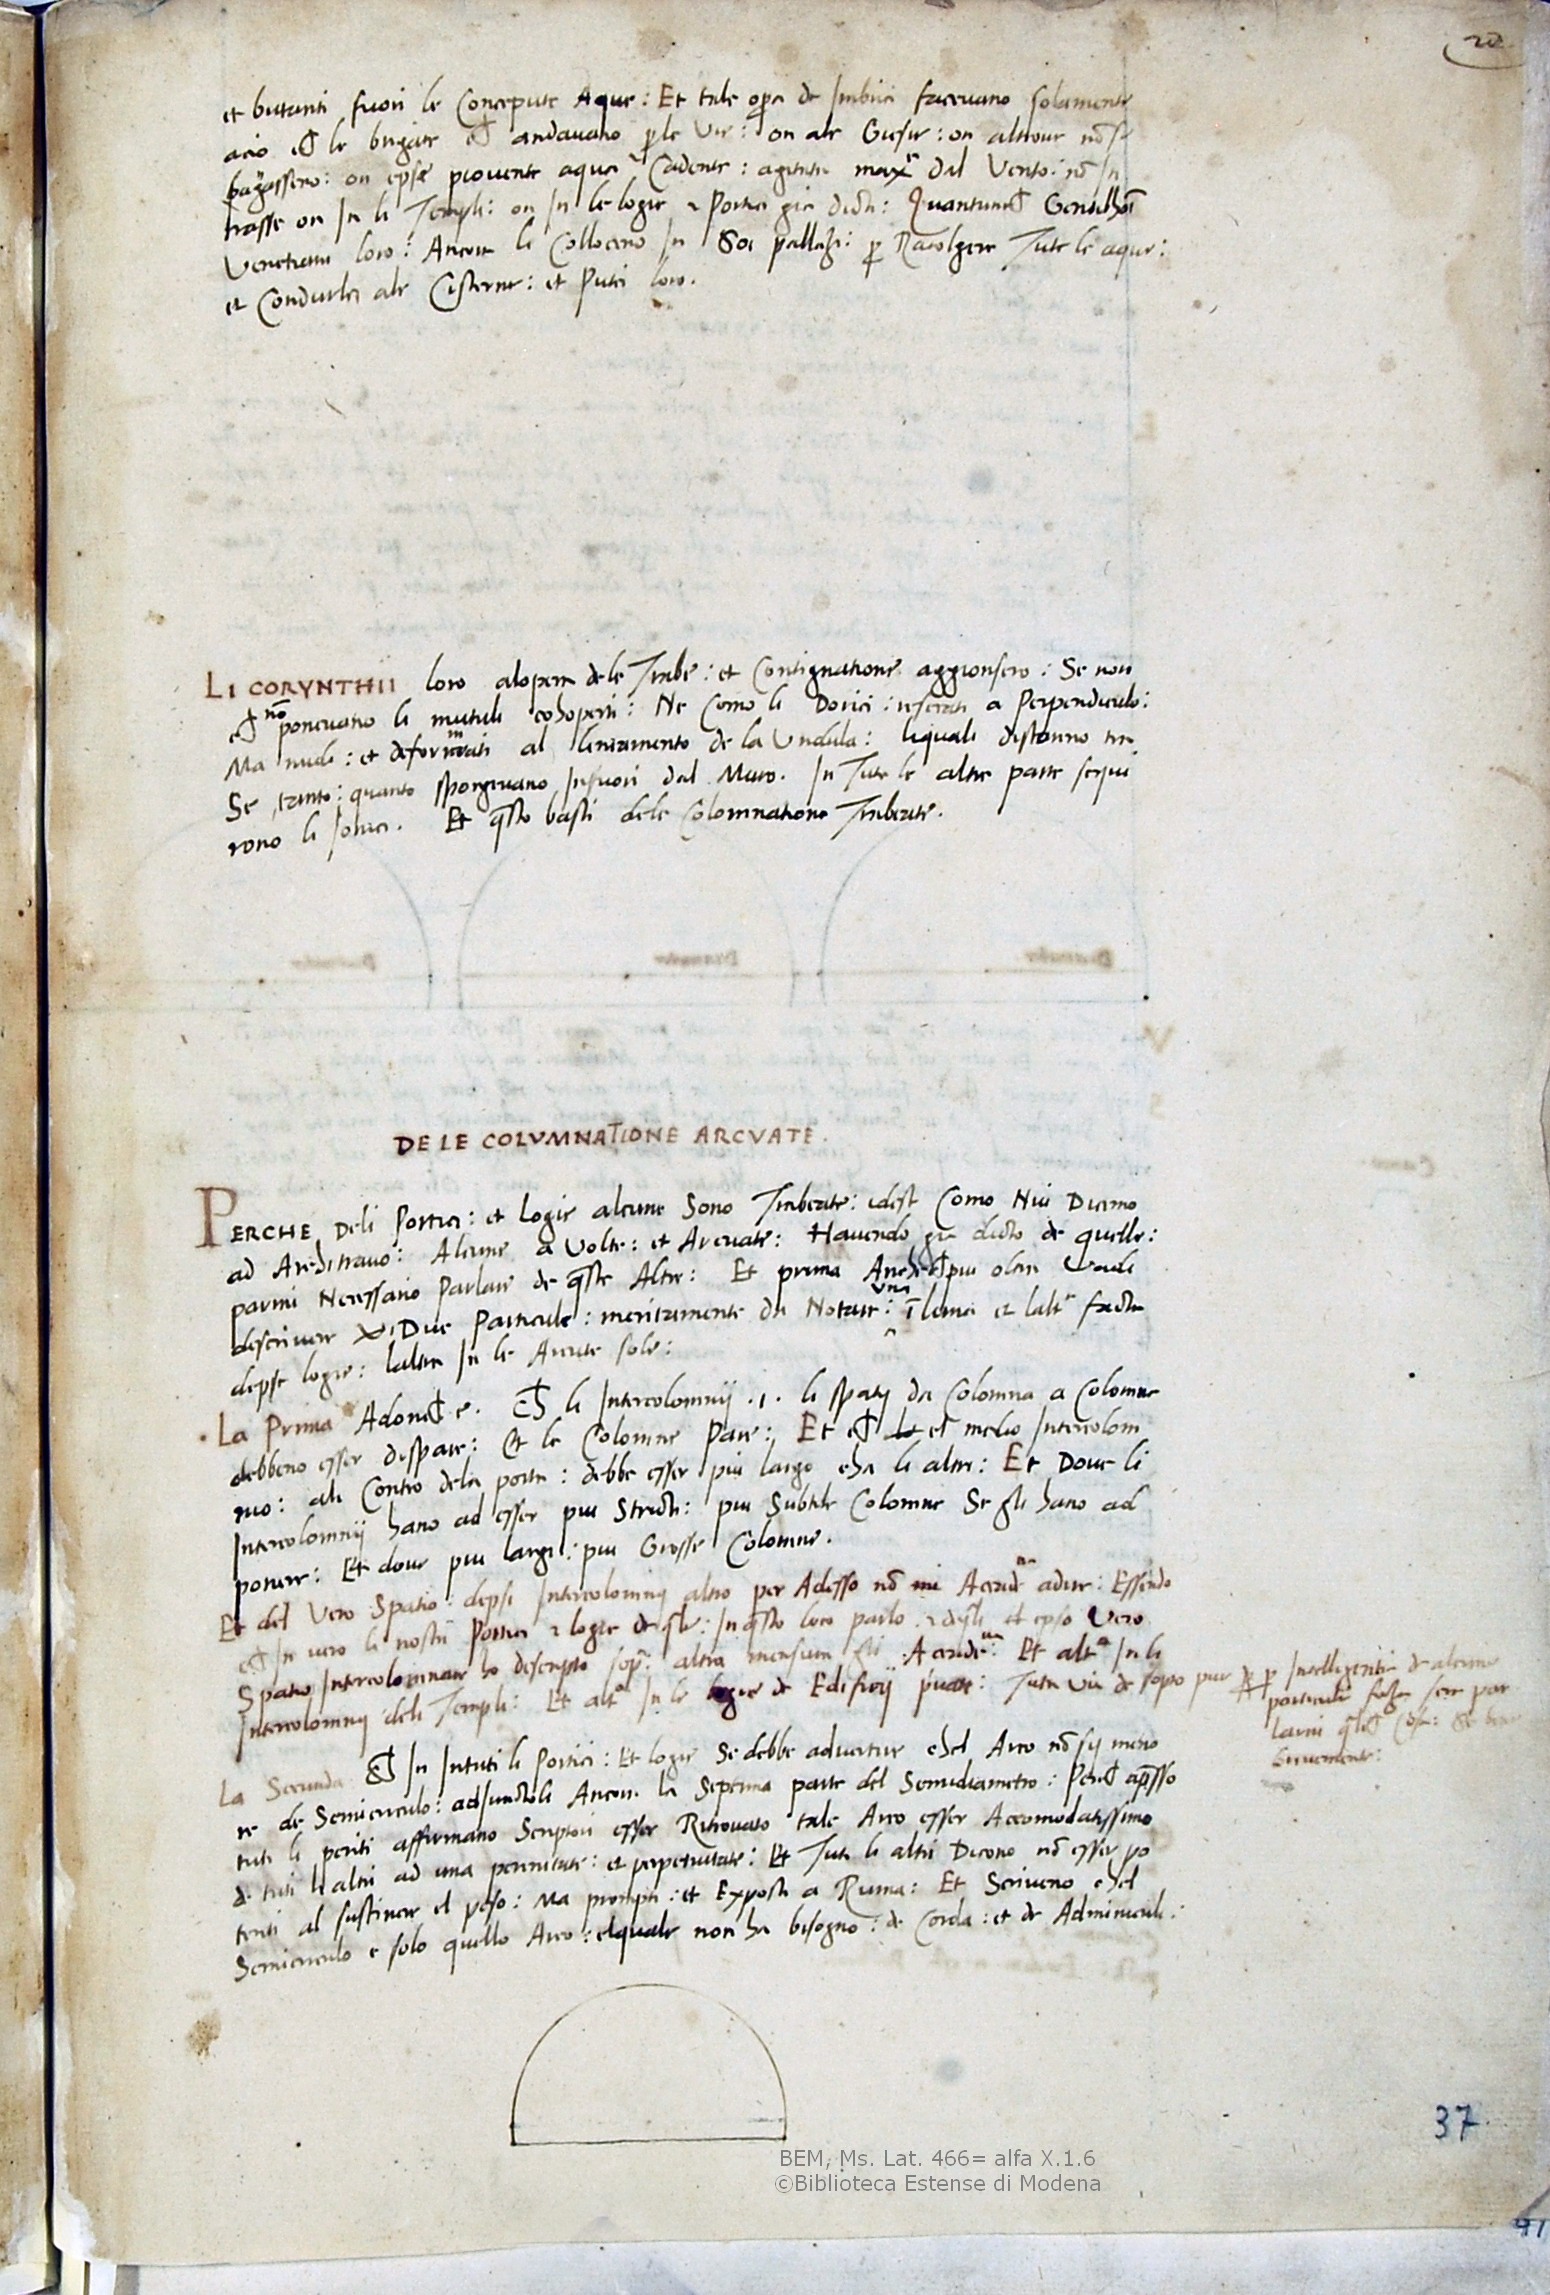 et butanti fuori le Concepute Aque: Et tale opa de Imbrici facevano solamente
acio cħ le brigate cħ andavano ple Vie: on ale Giesie: on altrove nō se
bagassero: on epse piovente aqua Cadente: agitata max.e dal Vento: nō In
trasse on In li Templi: on In le logie & Portici gia dicti: Quantuncħ
Venetiani loro: Ancora le Collocano In Soi pallazi: p Racolgere Tute le aque:
et Condurle ale Cisterne: et Putei loro.
LI CORYNTHII loro alopera dele Trabe: et Contignatione aggionsero: Se non
cħ nō ponevano li mutuli cohoperti: Ne Como li Dorici: resecati a Perpendiculo:
Ma nudi: et deformati al liniamento de la Undula: liquali distanno tra
Se tanto: quanto sporgevano Infuori dal Muro. In Tute le altre parte sequi
rono li Ionici. Et qsto basti dele Colomnatione Trabeate.
DE LE COLVMNATIONE ARCVATE.
PERCHE Deli Portici: et Logie alcune Sono Trabeate: idest Como Nui Dicemo
ad Architravo: Alcune a Volte: et Arcuate: Havendo gia dicto de quelle:
parmi Necessario Parlare de qste Altre: Et prima cħ piu oltra Vadi
descrivere Due Particule: meritamente da Notare: una ī et
depse logie: laltra In le Arcate sole:
La Prima Adoncħ e. Cħ li Intercolomnij .i. li spatij da Colomna a Colomne
debbeno esser dispare: Et le Colomne Pare: Et cħ el medio Intercolom
nio: ali Contro dela porta: debbe esser piu largo cha li altri: Et Dove li
Intercolomnij hano ad esser piu Stricti: piu Subtile Colomne Se gli hano ad
ponere: Et dove piu largi: piu Grosse Colomne.
Et del Vero Spatio depsi Intercolomnij altro per Adesso nō mi adire: Essendo
cħ In vero li nostri Portici & logie de qle: In qsto loco parlo
Spatio Intercolomnare ho descripto sop.a altra mensura Et alt.a In li
Intercolomnij deli Templi: Et alt.a In le logie de Edificij pvate: Tuta via de sopto pur
p Intelligentia de alcune
particule
brevemente:
La Secunda Cħ In Intuti li Portici: Et logie Se debbe advertire chel Arco nō sij meno
re de Semicirculo: adiunctoli Ancora la Septima parte del Semidiametro: Percħ apsso
tuti li periti affirmano Scriptori esser Ritrovato tale Arco esser Accomodatissimo
de tuti li altri ad una perennitate: et perpetuitate: Et Tuti li altri Dicono nō esser po
tenti al sustinere el peso: Ma prompti: et Exposti a Ruina: Et Scriveno chel
Semicirculo e solo quello Arco: elquale non ha bisogno: de Corda: et de Adminiculi:
37
41
BEM, Ms. Lat. 466= alfa X.1.6
©Biblioteca Estense di Modena